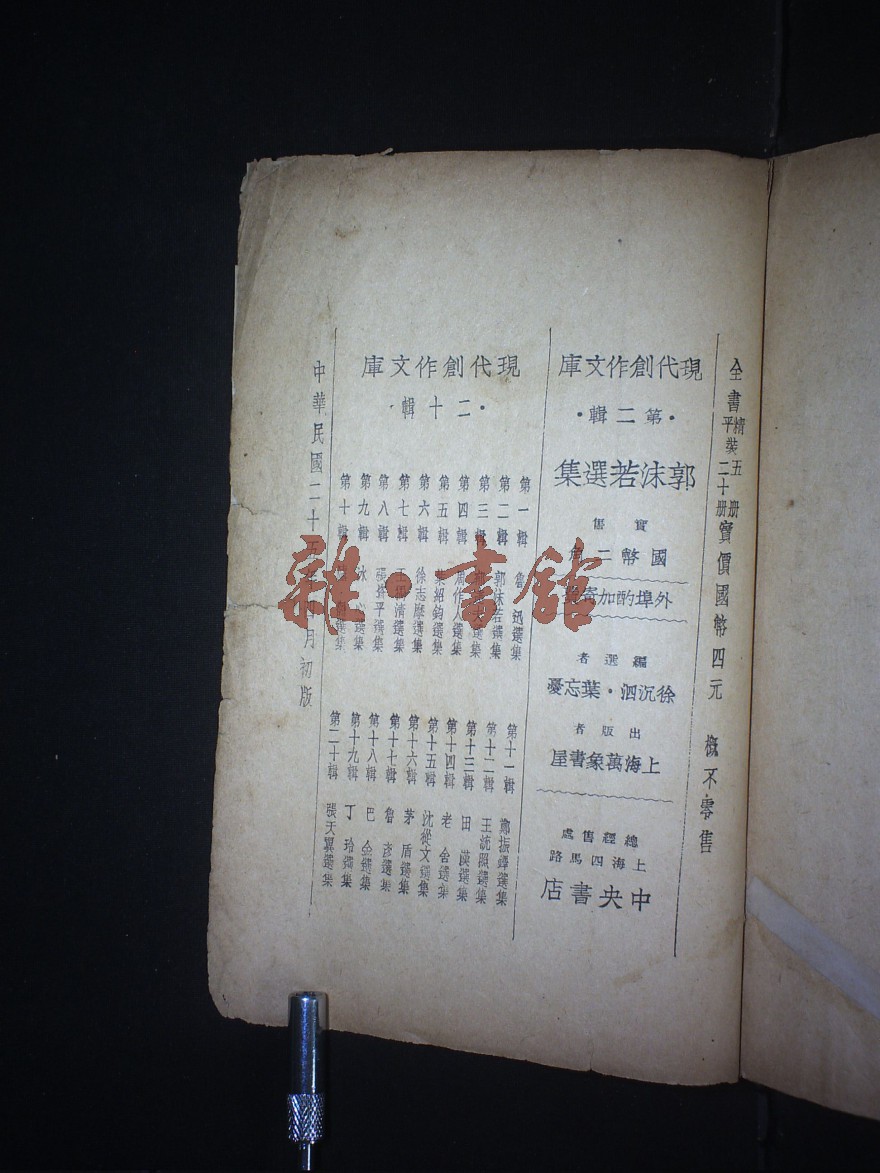 全書精裝五冊平裝二十冊實價國幣四元　概不零售
現代創作文庫
·第二輯·
郭沫若選集
實售
國幣二角
外埠酌加寄
編選者
徐沉泗·葉忘憂
出版者
上海萬象書屋
總經售處
上海四馬路
中央書店
現代創作文庫
·二十輯·
第一輯　魯迅選集
第二輯　郭沫若選集
第三輯　選集
第四輯　周作人選集
第五輯　葉紹鈞選集
第六輯　徐志摩選集
第七輯　王選集
第八輯　張資平選集
第九輯　冰心選集
第十輯　選集
第十一輯　鄭振鐸選集
第十二輯　王統照選集
第十三輯　田漢選集
第十四輯　老舍選集
第十五輯　沈從文選集
第十六輯　茅盾選集
第十七輯　魯彥選集
第十八輯　巴金選集
第十九輯　丁玲選集
第二十輯　張天翼選集
中華民國二十五年月初版
雜·書館